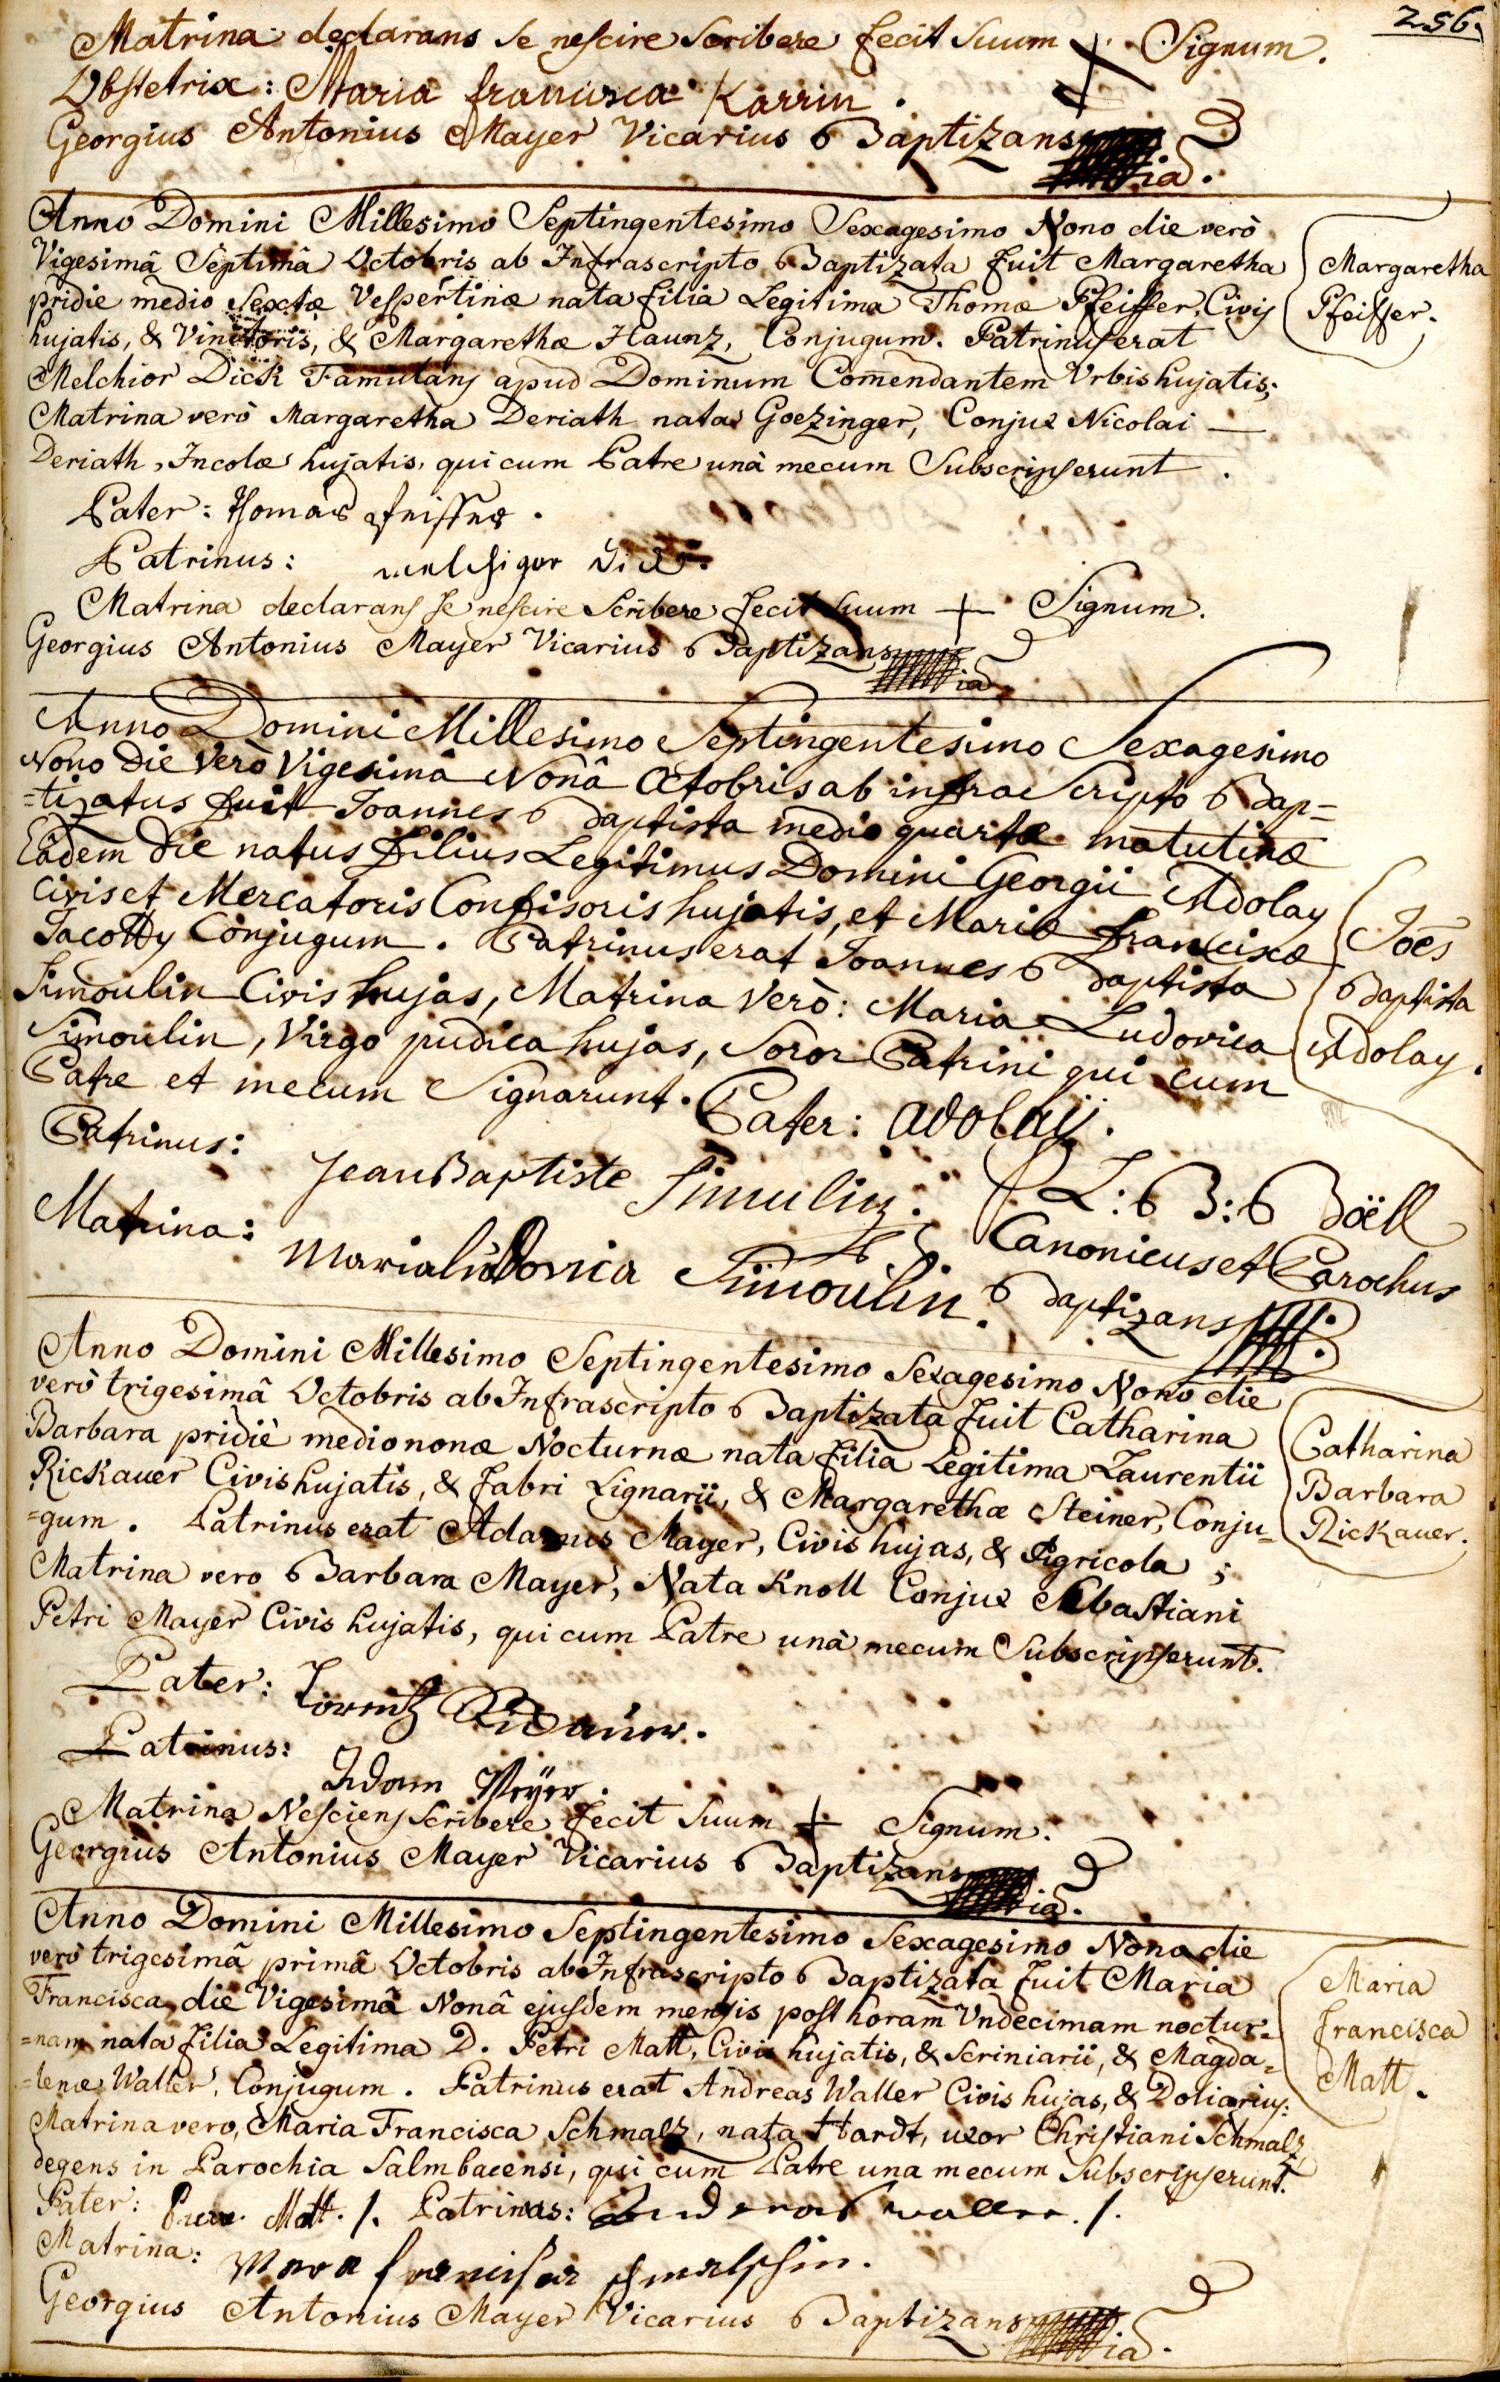 256.
Matrina declarans se nescire Scribere fecit Suum + Signum.
Obstetrix: Maria francisca Karrin.
Georgius Antonius Mayer Vicarius Baptizans
Anno Domini Millesimo Septingentesimo Sexagesimo Nono die verò
Vigesimâ Septimâ Octobris ab Infrascripto Baptizata fuit Margaretha
pridie medio Sextæ Vespertinæ nata filia Legitima Thomæ Pfeiffer, Civis
hujatis, & Vinitoris, & Margarethæ Haunz, Conjugum. Patrinus erat
Melchior Dick Famulans apud Dominum Com̄endantem Urbis hujatis;
Matrina verò Margaretha Deriath nata Goezinger, Conjux Nicolai
Deriath, Incolæ hujatis, qui cum Patre unà mecum Subscripserunt.
Margaretha
Pfeiffer.
Pater: Thomas Pfeiffer.
Patrinus: melchigor Dick.
Matrina declarans se nescire Scribere fecit Suum + Signum.
Georgius Antonius Mayer Vicarius Baptizans
Anno Domini Millesimo Septingentesimo Sexagesimo
Nono Die Verò Vigesimâ Nonâ Octobris ab infra Scripto Bap=
=tizatus fuit Joannes Baptista medio quartæ matutinæ
Eâdem Die natus Filius Legitimus Domini Georgii Adolay
Civis et Mercatoris Confisoris hujatis, et Mariæ Franciscæ
Jacotty Conjugum. Patrinus erat Joannes Baptista
Simoulin Civis hujas, Matrina Verò: Maria Ludovica
Simoulin, Virgo pudica hujas, Soror Patrini qui cum
Patre et mecum Signarunt. Pater: adolaÿ.
Joēs
Baptista
Adolay.
Patrinus: Jean Baptiste Simulin.
Matrina: Maria ludovica Simoulin.
L: B: Böell
Canonicus et Parochus
Baptizans
Anno Domini Millesimo Septingentesimo Sexagesimo Nono die
verò trigesimâ Octobris ab Infrascripto Baptizata fuit Catharina
Barbara pridiè medio nonæ Nocturnæ nata filia Legitima Laurentii
Rickauer Civis hujatis, & fabri Lignarii, & Margarethæ Steiner, Conju=
=gum. Patrinus erat Adamus Mayer, Civis hujas, & Agricola;
Matrina vero Barbara Mayer, Nata Knoll Conjux Sebastiani
Petri Mayer Civis hujatis, qui cum Patre unà mecum Subscripserunt.
Catharina
Barbara
Rickauer.
Pater: Lorentz Rickauer.
Patrinus: Adam Meÿer.
Matrina Nesciens Scribere fecit Suum + Signum.
Georgius Antonius Mayer Vicarius Baptizans
Anno Domini Millesimo Septingentesimo Sexagesimo Nono die
verò trigesimâ primâ Octobris ab Infrascripto Baptizata fuit Maria
Francisca, die Vigesimâ Nonâ ejusdem mensis post horam Undecimam noctur=
=nam nata filia Legitima D. Petri Matt, Civis hujatis, & Scriniarii, & Magda=
=lenæ Waller, Conjugum. Patrinus erat Andreas Waller Civis hujas, & Doliarius:
Matrina vero, Maria Francisca Schmalz, nata Hardt, uxor Christiani Schmalz,
degens in Parochia Salmbacensi, qui cum Patre una mecum Subscripserunt.
Maria
francisca
Matt.
Pater: Matt. /. Patrinus: Andreas waller. /.
Matrina: Maria francisca schmalshin.
Georgius Antonius Mayer Vicarius Baptizans